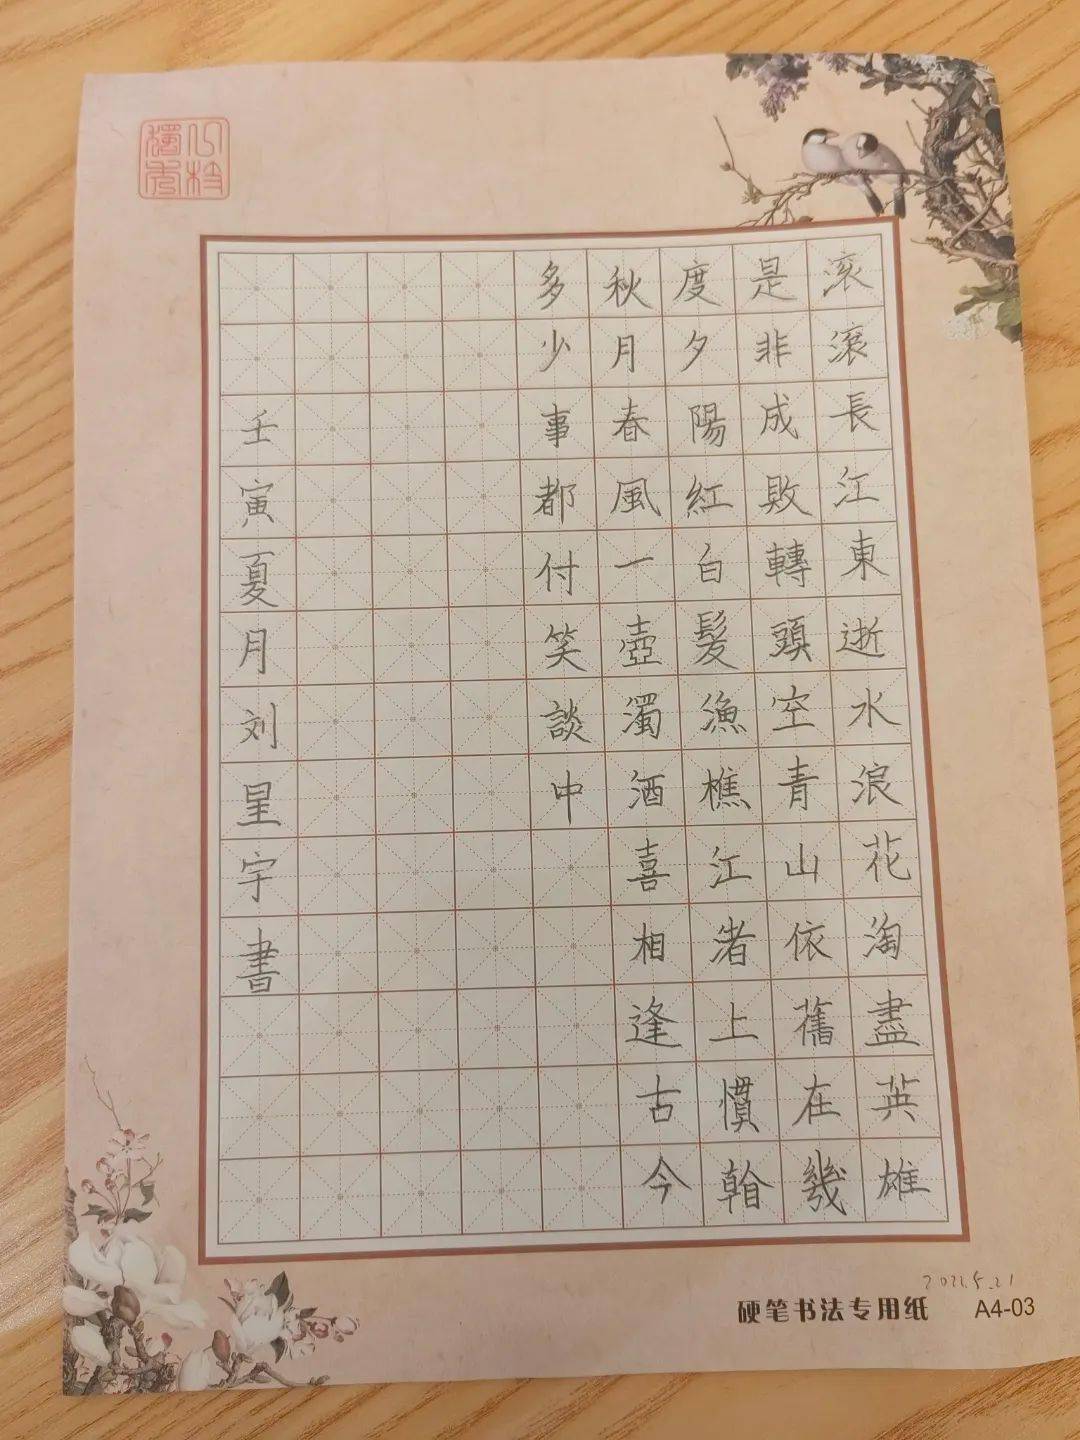 滚滚長江東逝水浪花淘盡英雄
是非成敗轉頭空青山依舊在幾
度夕陽紅白髮漁樵江渚上慣
秋月春風一壺濁酒喜相逢古今
多少事都付笑談中
壬寅夏月刘星宇書
2022.5.21
硬笔书法专用纸 A4-03